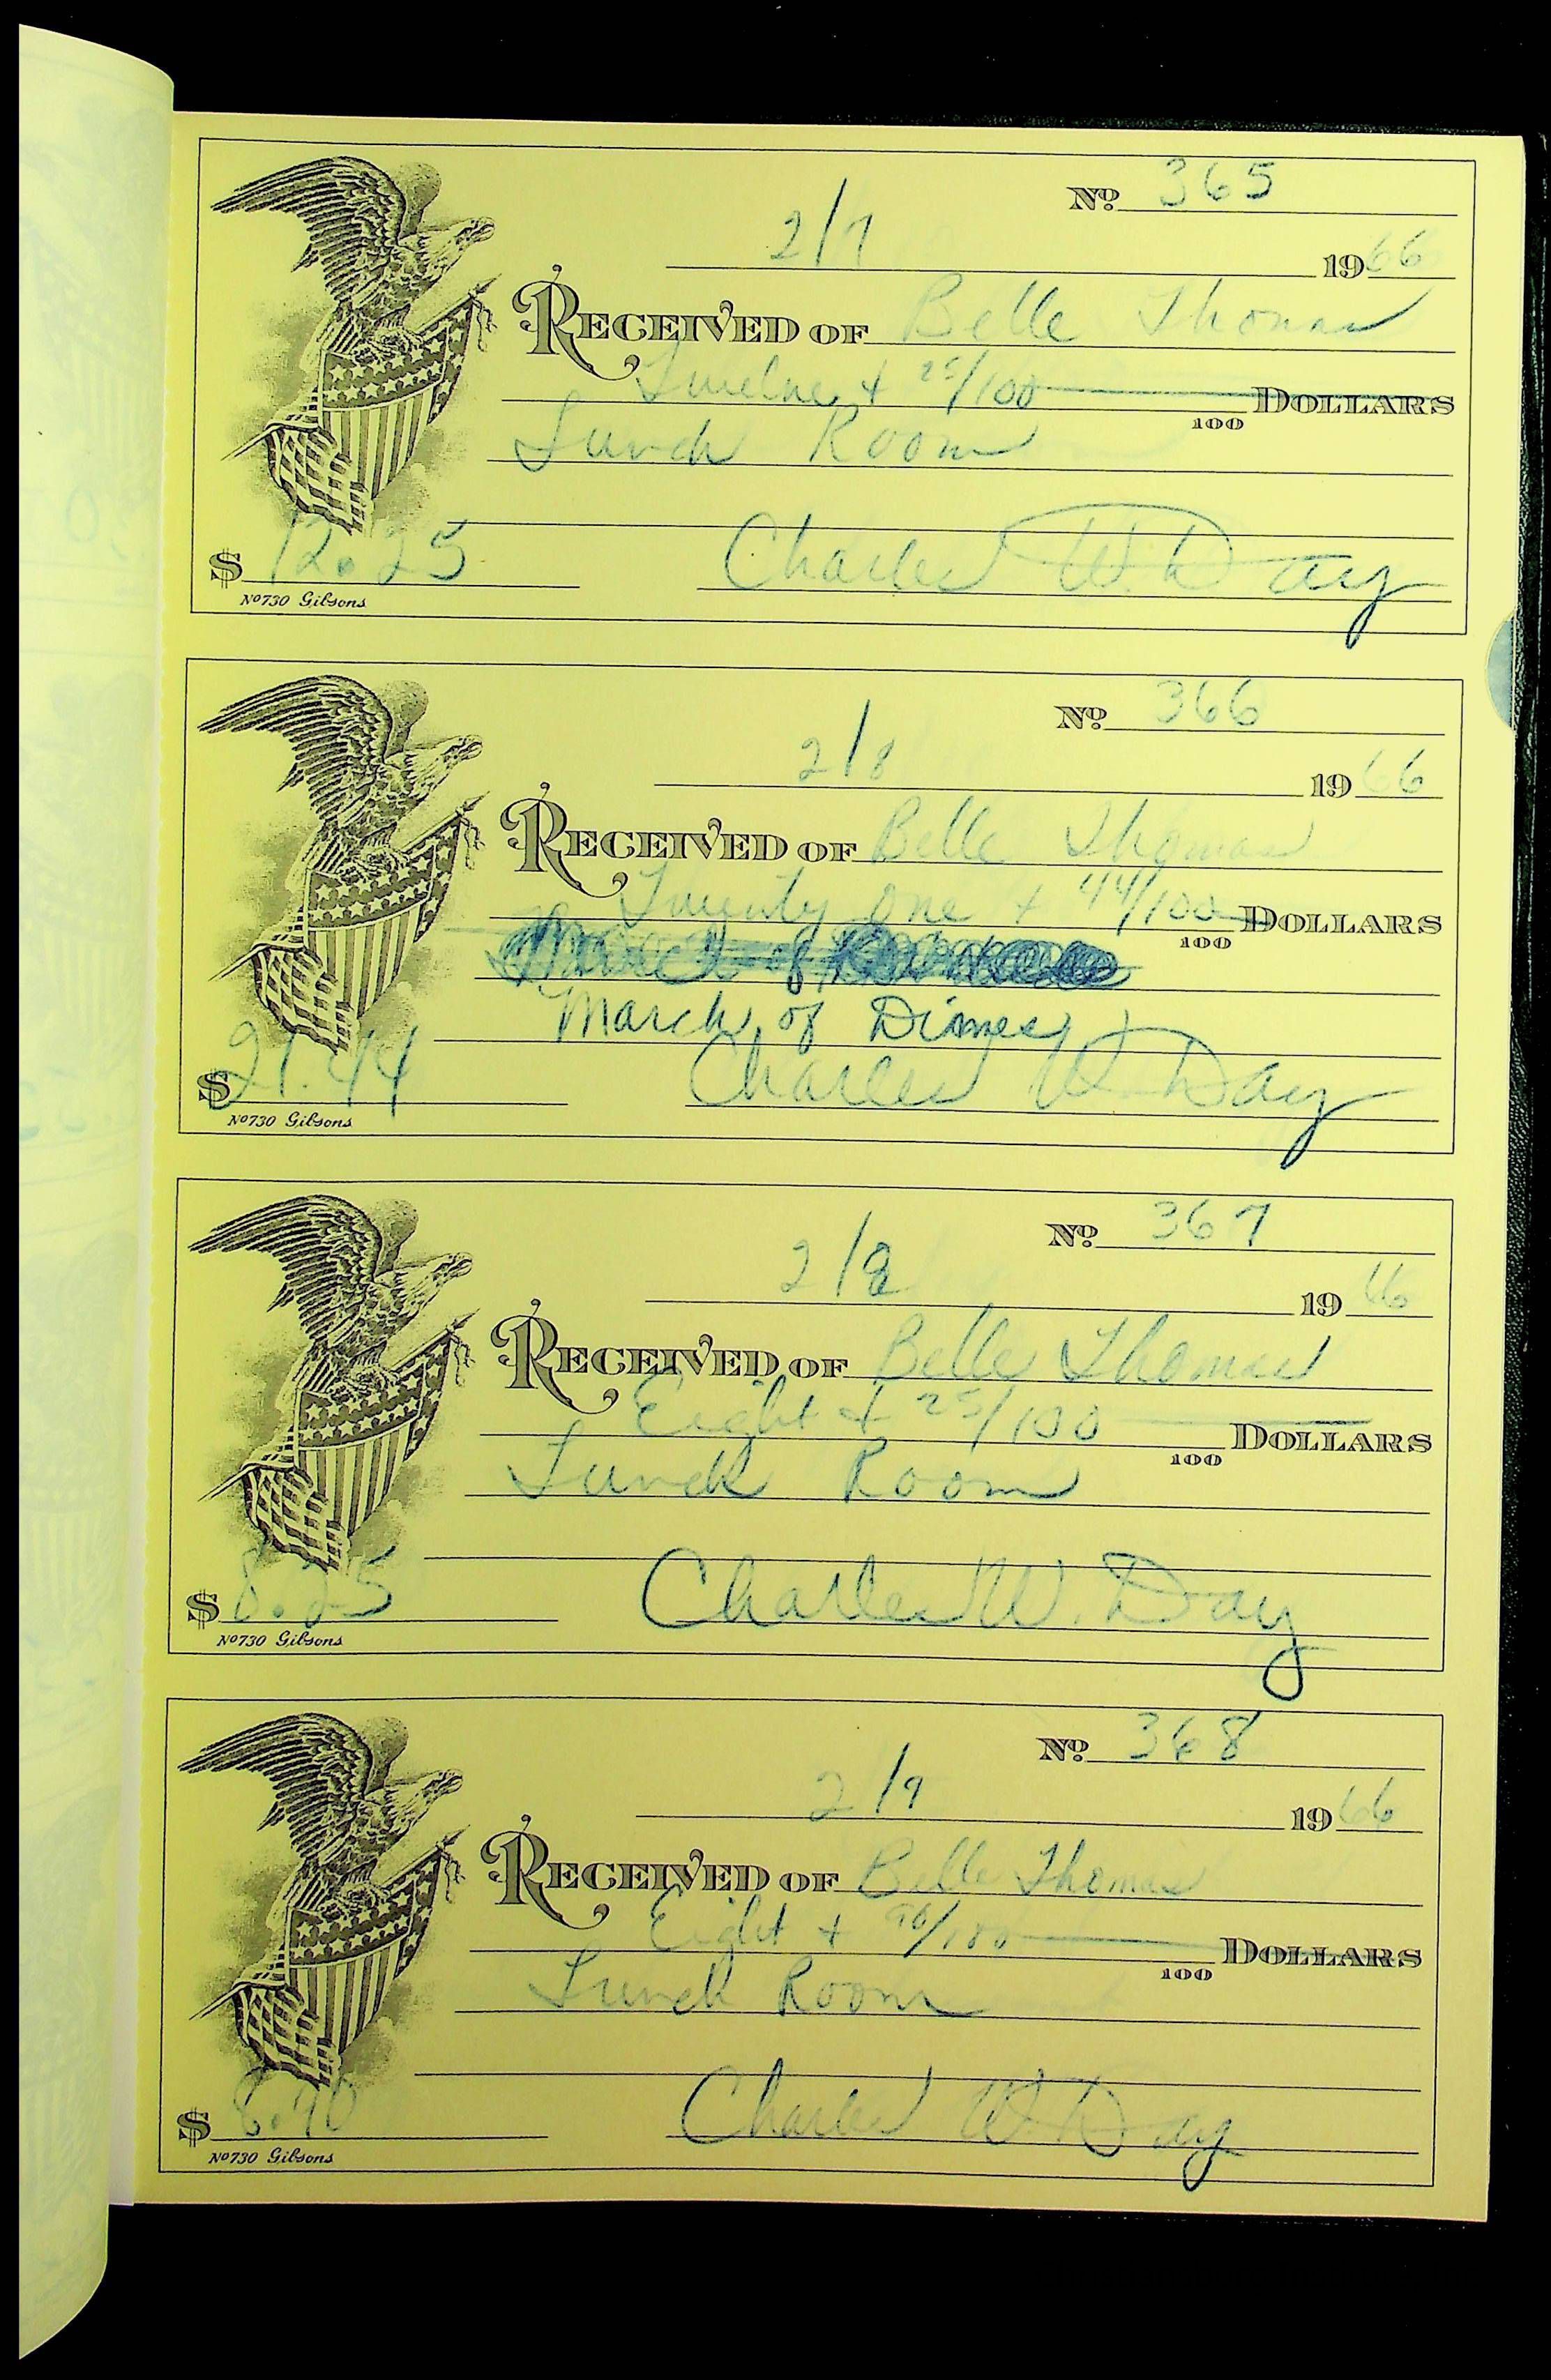 Nº 365
2/7 1966
RECEIVED OF Belle Thomas
Twelve + 25/100 DOLLARS
100
Lunch Room
$ 12.25 Charles W. Day
Nº730 Gibsons
Nº 366
2/8 1966
RECEIVED OF Belle Thomas
Twenty one + 44/100 DOLLARS
100
March of Dimes
$ 21.44 Charles W. Day
Nº730 Gibsons
Nº 367
2/8 1966
RECEIVED OF Belle Thomas
Eight + 25/100 DOLLARS
100
Lunch Room
$ 8.25 Charles W. Day
Nº730 Gibsons
Nº 368
2/9 1966
RECEIVED OF Belle Thomas
Eight + 90/100 DOLLARS
100
Lunch Room
$ 8.90 Charles W. Day
Nº730 Gibsons